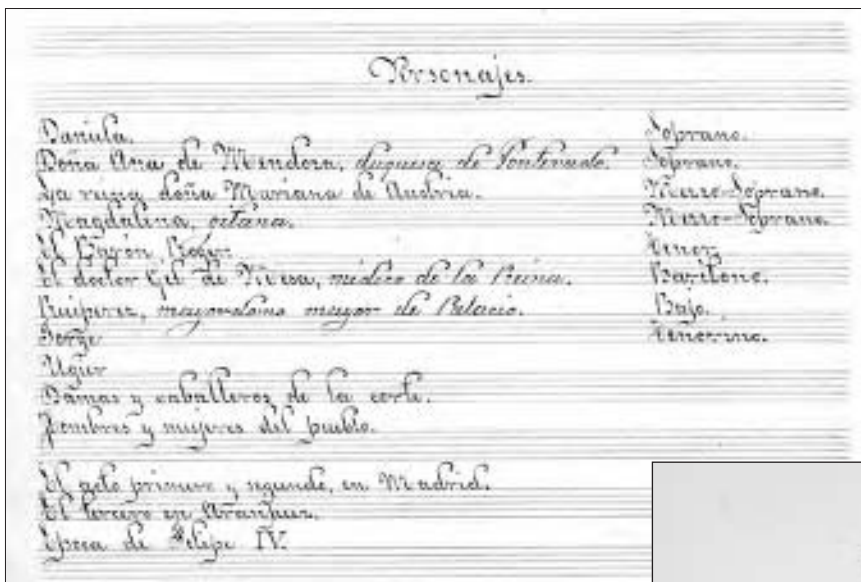 Personajes.
Daniela. Soprano.
Doña Ana de Mendoza, duquesa de Pontevedo. Soprano.
La reina doña Mariana de Austria. Mezzo-Soprano.
Magdalena, gitana. Mezzo-Soprano.
El Barón Roger Tenor.
El doctor Gil de Mesa, médico de la Reina. Barítono.
Ruiperez, mayordomo mayor de Palacio. Bajo.
Jorge Tenorino.
Ugier
Damas y caballeros de la corte.
Hombres y mujeres del pueblo.
El acto primero y segundo, en Madrid.
El tercero en Aranjuez.
Época de Felipe IV.